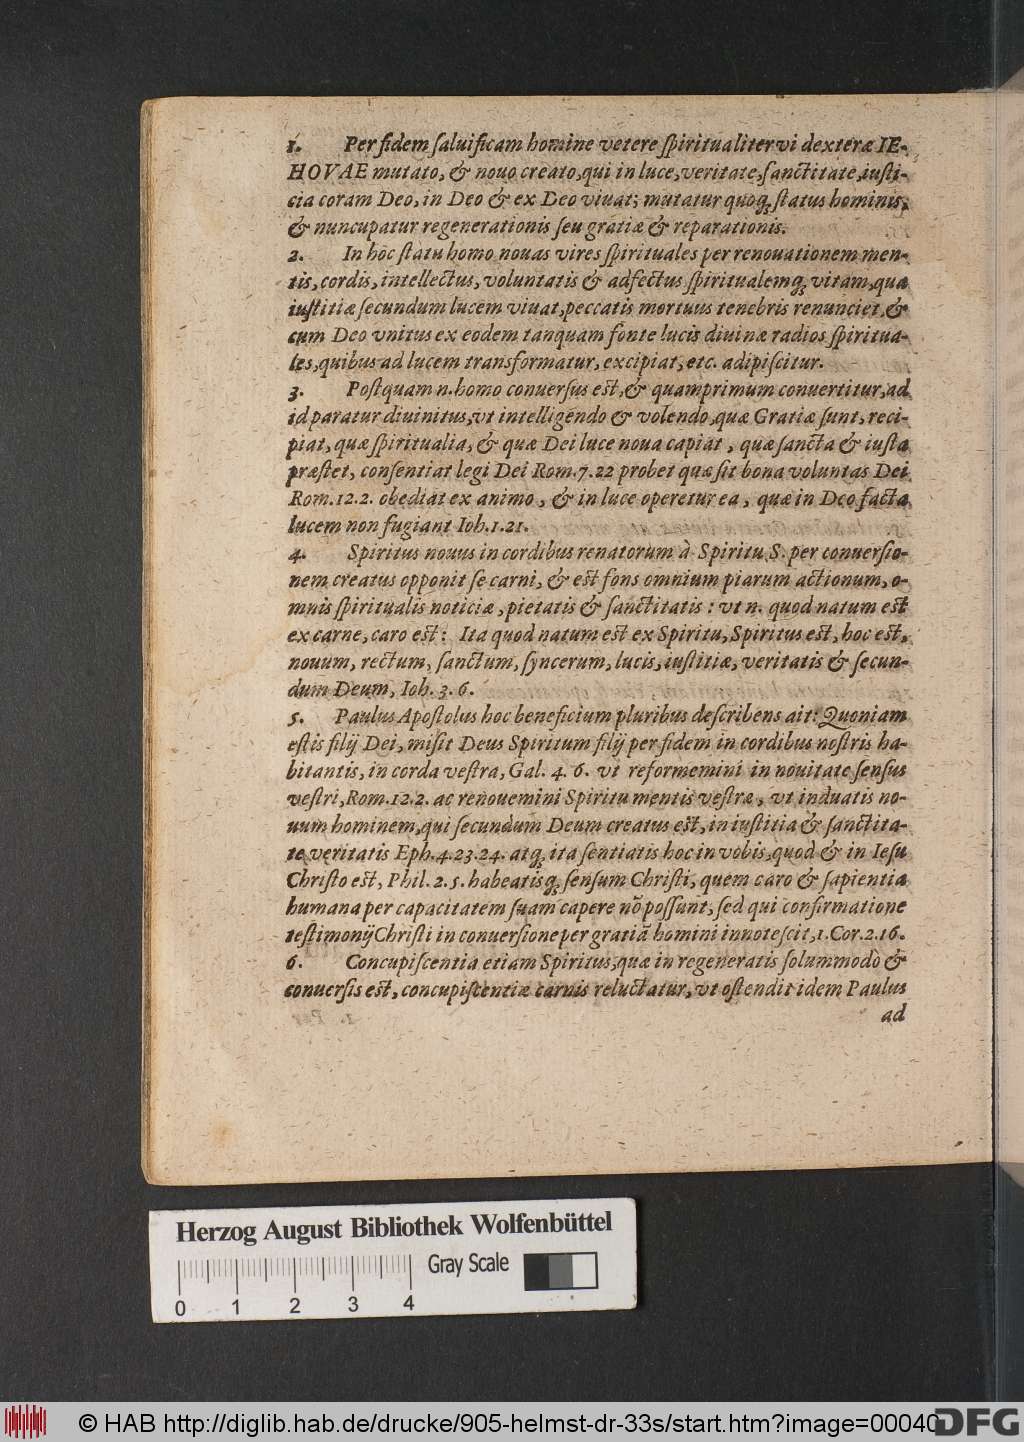 1. Per fidem ſaluificam homine vetere ſpiritualiter vi dexteræ IE-
HOVAE mutato, & nouo creato, qui in luce, veritate, ſanctitate, iuſti-
cia coram Deo, in Deo & ex Deo viuat; mutatur quoq; ſtatus hominis,
& nuncupatur regenerationis ſeu gratiæ & reparationis.
2. In hoc ſtatu homo nouas vires ſpirituales per renouationem men-
tis, cordis, intellectus, voluntatis & adfectus ſpiritualemq; vitam, qua
iuſtitiæ ſecundum lucem viuat, peccatis mortuus tenebris renunciet, &
cum Deo vnitus ex eodem tanquam fonte lucis diuinæ radios ſpiritua-
les, quibus ad lucem transformatur, excipiat, etc. adipiſcitur.
3. Poſtquam n. homo conuerſus eſt, & quamprimum conuertitur, ad
id paratur diuinitus, vt intelligendo & volendo, quæ Gratiæ ſunt, reci-
piat, quæ ſpiritualia, & quæ Dei luce noua capiat, quæ ſancta & iuſta
præſtet, conſentiat legi Dei Rom. 7. 22 probet quæ ſit bona voluntas Dei
Rom. 12. 2. obediat ex animo, & in luce operetur ea, quæ in Deo facta
lucem non fugiant Ioh. 1. 21.
4. Spiritus nouus in cordibus renatorum à Spiritu S. per conuerſio-
nem creatus opponit ſe carni, & eſt fons omnium piarum actionum, o-
mnis ſpiritualis noticiæ, pietatis & ſanctitatis: vt n. quod natum eſt
ex carne, caro eſt: Ita quod natum eſt ex Spiritu, Spiritus eſt, hoc eſt,
nouum, rectum, ſanctum, ſyncerum, lucis, iuſtitiæ, veritatis & ſecun-
dum Deum, Ioh. 3. 6.
5. Paulus Apoſtolus hoc beneficium pluribus deſcribens ait: Quoniam
eſtis filij Dei, miſit Deus Spiritum filij per fidem in cordibus noſtris ha-
bitantis, in corda veſtra, Gal. 4. 6. vt reformemini in nouitate ſenſus
veſtri, Rom. 12. 2. ac renouemini Spiritu mentis veſtræ, vt induatis no-
uum hominem, qui ſecundum Deum creatus eſt, in iuſtitia & ſanctita-
te veritatis Eph. 4. 23. 24. atq; ita ſentiatis hoc in vobis, quod & in Ieſu
Chriſto eſt, Phil. 2. 5. habeatisq; ſenſum Chriſti, quem caro & ſapientia
humana per capacitatem ſuam capere nõ poſſunt, ſed qui confirmatione
teſtimonij Chriſti in conuerſione per gratiã homini innoteſcit, 1. Cor. 2. 16.
6. Concupiſcentia etiam Spiritus, quæ in regeneratis ſolummodò &
conuerſis eſt, concupiſcentiæ carnis reluctatur, vt oſtendit idem Paulus
ad
Herzog August Bibliothek Wolfenbüttel
Gray Scale
0 1 2 3 4
© HAB http://diglib.hab.de/drucke/905-helmst-dr-33s/start.htm?image=00040
DFG